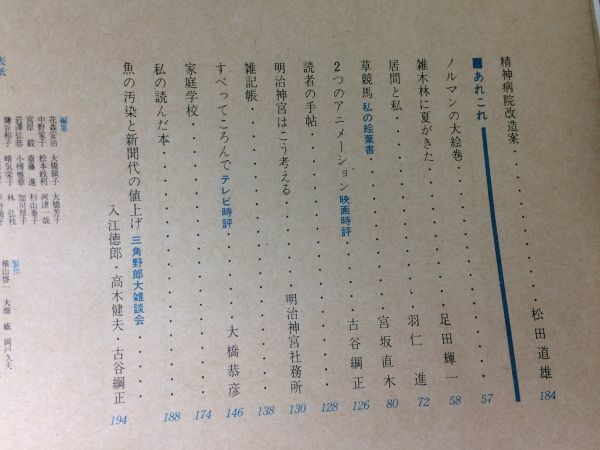 精神病院改造案・・・・・・・・・・松田道雄 184
■あれこれ 57
ノルマンの大絵巻・・・・・・・・・・足田輝一 58
雑木林に夏がきた・・・・・・・・・・羽仁 進 72
居間と私・・・・・・・・・・宮坂直木 80
草競馬 私の絵葉書
2つのアニメーション 映画時評・・・・・・古谷綱正 126
読者の手帖・・・・・・・・・・128
明治神宮はこう考える・・・・・・明治神宮社務所 130
雑記帳・・・・・・・・・・138
すべってころんで テレビ時評・・・・・・大橋恭彦 146
家庭学校・・・・・・・・・・174
私の読んだ本・・・・・・・・・・188
魚の汚染と新聞代の値上げ 三角野郎大雑談会・・・・・・
入江徳郎・高木健夫・古谷綱正 194
編集
花森安治 大橋鎭子 大橋芳子
中野家子 松本政利 河津一哉
宮岸 毅 斎藤 進 杉山泰子
岩澤弘恭 小榑雅章 加川厚子
鎌谷和子 晴気栄子 林 弘枝
製作
横山啓一 大畑 威 岡戸久夫
表紙